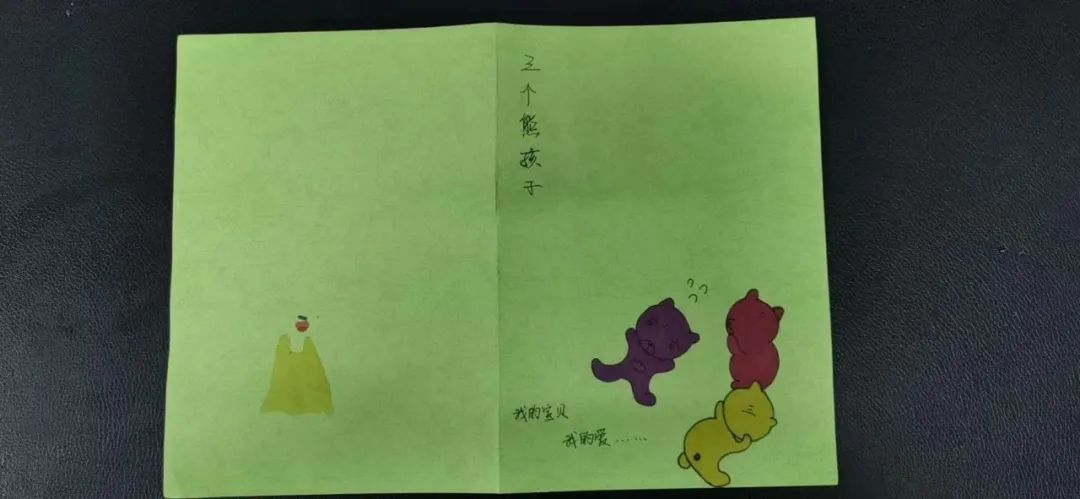 三个熊孩子
我的宝贝
我的爱……